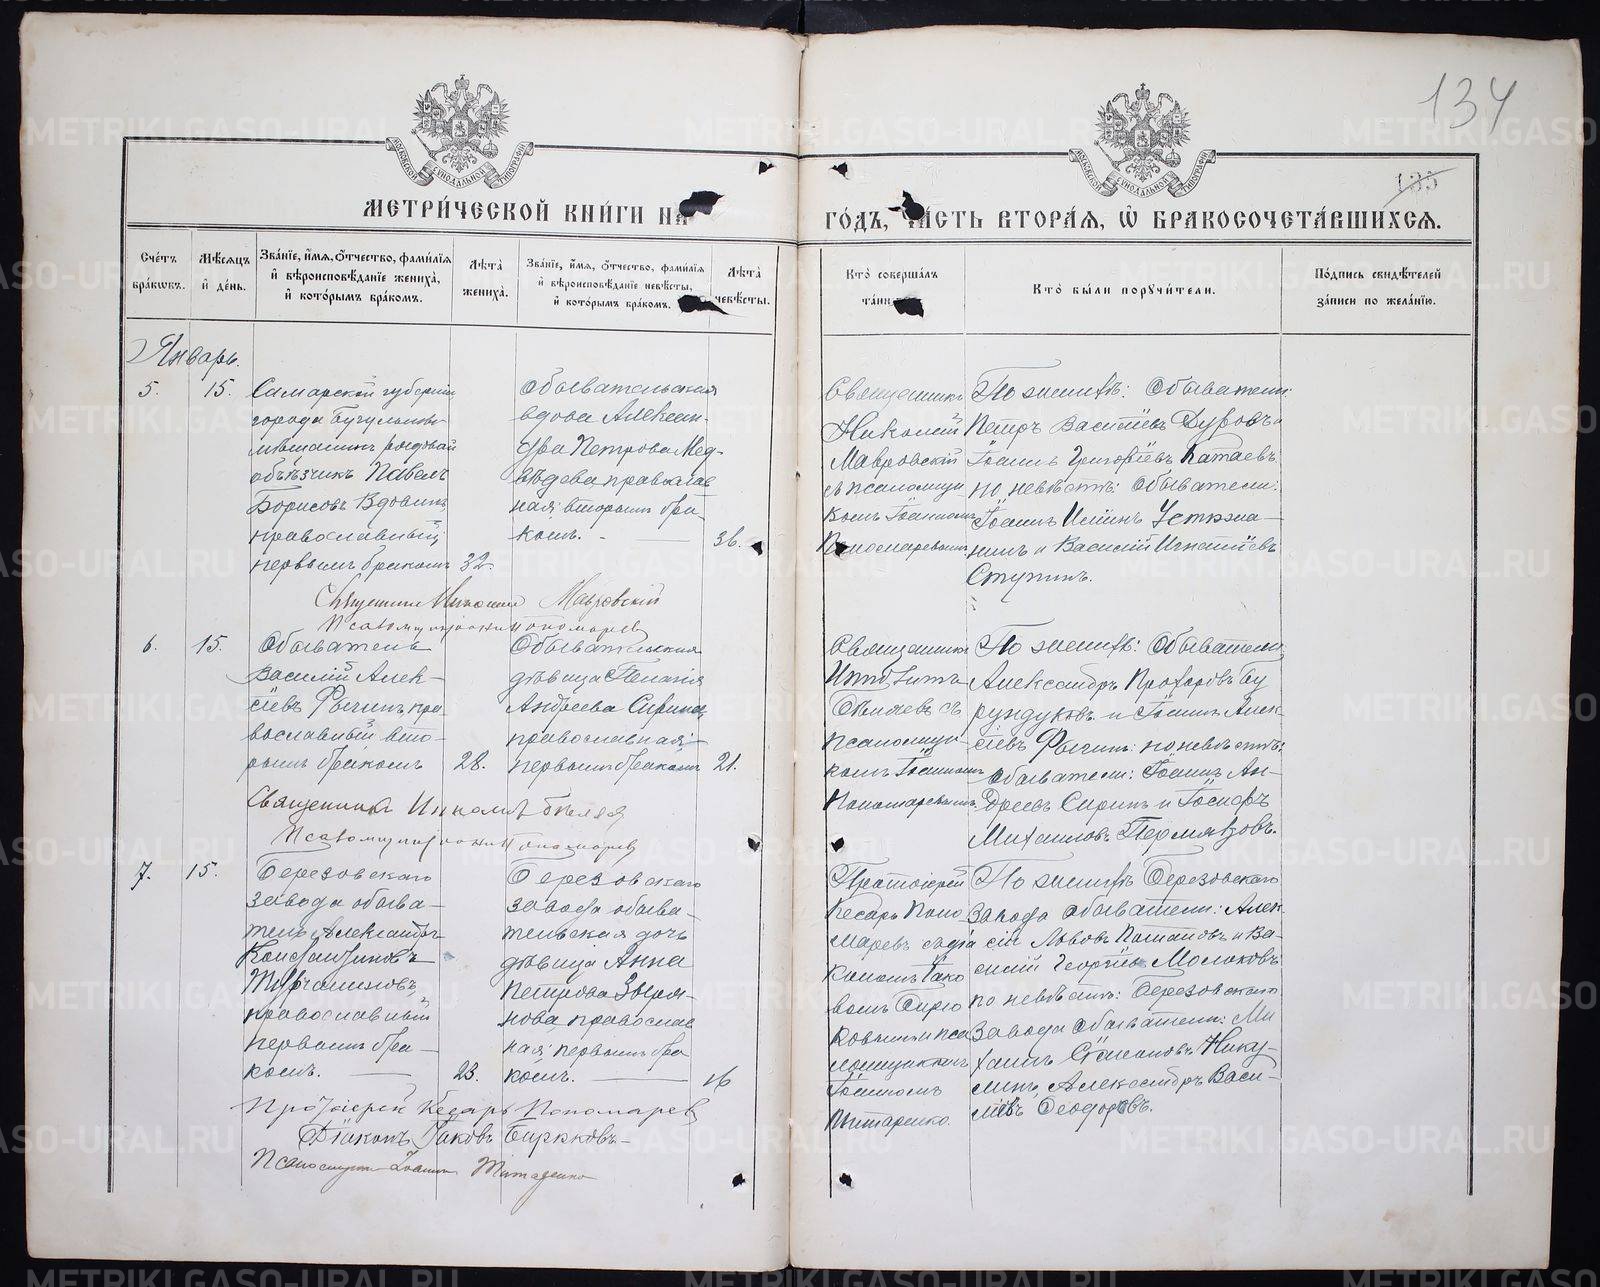 134
135
МЕТРИ́ЧЕСКОЙ КНИ́ГИ НА
ГО́ДЪ, ЧА́СТЬ ВТОРА́Я, Ѡ҆ БРАКОСОЧЕТА́ВШИХСЯ.
Сче́тъ бра́кѡвъ.
Мѣ́сяцъ и҆ де́нь.
Зва́нїе, и҆́мя, ѻ҆́тчество, фами́лїя и҆ вѣроисповѣ́данїе жениха̀, и҆ кото́рымъ бра́комъ.
Лѣ́та жениха̀.
Зва́нїе, и҆́мя, ѻ҆́тчество, фами́лїя и҆ вѣроисповѣ́данїе невѣ́сты, и҆ кото́рымъ бра́комъ.
Лѣ́та невѣ́сты.
Кто̀ соверша́лъ
Кто̀ бы́ли порꙋчи́тели.
По́дпись свидѣ́телей за́писи по жела́нїю.
Январь.
5.
15.
Самарской губернiи
города Бугульмы
мѣщанинъ
объѣзчикъ Павелъ
Борисовъ Вдовинъ,
православный,
первымъ бракомъ
32.
Обывательская
вдова Алексан-
дра Петрова Мед-
вѣдева православ
ная, вторымъ бра
комъ. -
36.
Священникъ
Николай
Мавровскiй
съ псаломщи
комъ Iоанномъ
Пономаревымъ
По женихѣ: Обыватели:
Петръ Васильевъ Дуровъ и
Iоаннъ Григорьевъ Катаевъ
по невѣстѣ: Обыватели:
Iоаннъ Устюжа-
нинъ и Василiй Игнатьевъ
Ступинъ.
Священникъ Николай Мавровскiй
Псаломщикъ Iоаннъ Пономаревъ
6.
15.
Обыватель
Василiй Алек-
сѣевъ Фычинъ, пра-
вославный вто-
рымъ бракомъ
28.
Обывательская
дѣвица Пелагiя
Андреева Сирина,
православная,
первымъ бракомъ
21.
Священникъ
Бѣляевъ съ
псаломщи-
комъ Iоанномъ
Пономаревымъ.
По женихѣ: Обыватели
Александръ Прохоровъ Бу
рундуковъ и Iоаннъ Алек-
сѣевъ Фычинъ: по невѣстѣ:
Обыватели: Iоаннъ Ан-
дреевъ Сиринъ и Iосифъ
Михаиловъ Пермяковъ.
Священникъ
Псаломщикъ Iоаннъ Пономаревъ
7.
15.
Березовскаго
завода обыва-
тель Александръ
Константиновъ
православный
первымъ бра-
комъ.
23.
Березовскаго
завода обыва-
тельская дочь
дѣвица Анна
Петрова Зыря-
нова, православ
ная, первымъ бра
комъ.
16
Протоiерей
Кесарь Поно
маревъ съ дiа
кономъ Iако
вомъ Бирю
ковымъ и пса
ломщикомъ
Iоанномъ
По женихѣ Березовскаго
завода обыватели: Алек
сiй Львовъ Потаповъ и Ва-
силiй Георгiевъ Молоковъ
по невѣстѣ: Березовскаго
завода обыватели: Ми
хаилъ Степановъ Нику-
линъ, Александръ Васи-
льевъ Ѳеодоровъ.
Протоiерей Кесарь Пономаревъ
Дiаконъ Iаковъ Бирюковъ-
Псаломщикъ Iоаннъ